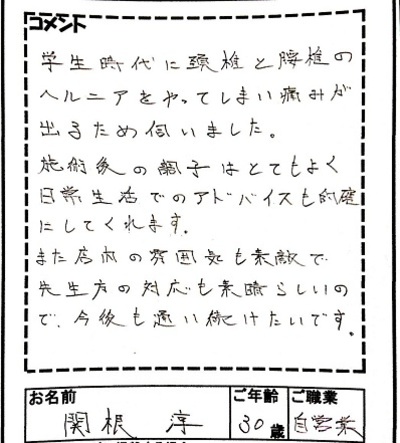 コメント
学生時代に頚椎と腰椎の
ヘルニアをやってしまい痛みが
出るため伺いました。
施術後の調子はとてもよく
日常生活でのアドバイスも的確
にしてくれます。
また店内の雰囲気も素敵で
先生方の対応も素晴らしいの
で、今後も通い続けたいです。
お名前
ご年齢
ご職業
関根 淳
30歳
自営業